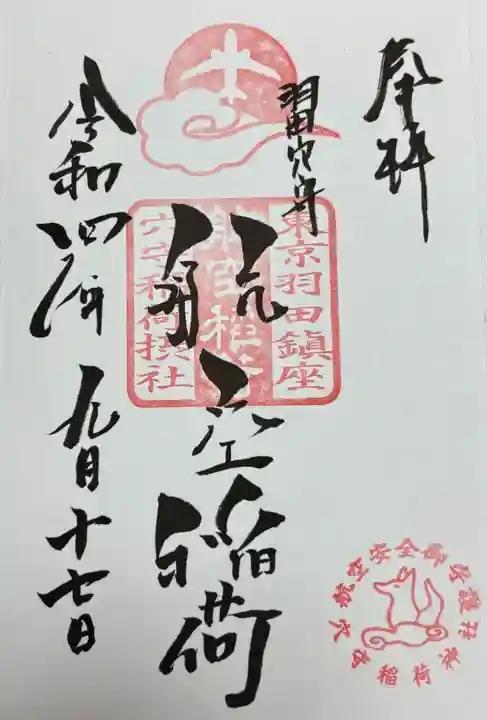 奉拝
羽田穴守
航空稲荷
東京羽田鎮座
航空社
穴守稲荷摂社
令和四年 九月十七日
航空安全御守護
穴守稲荷神社